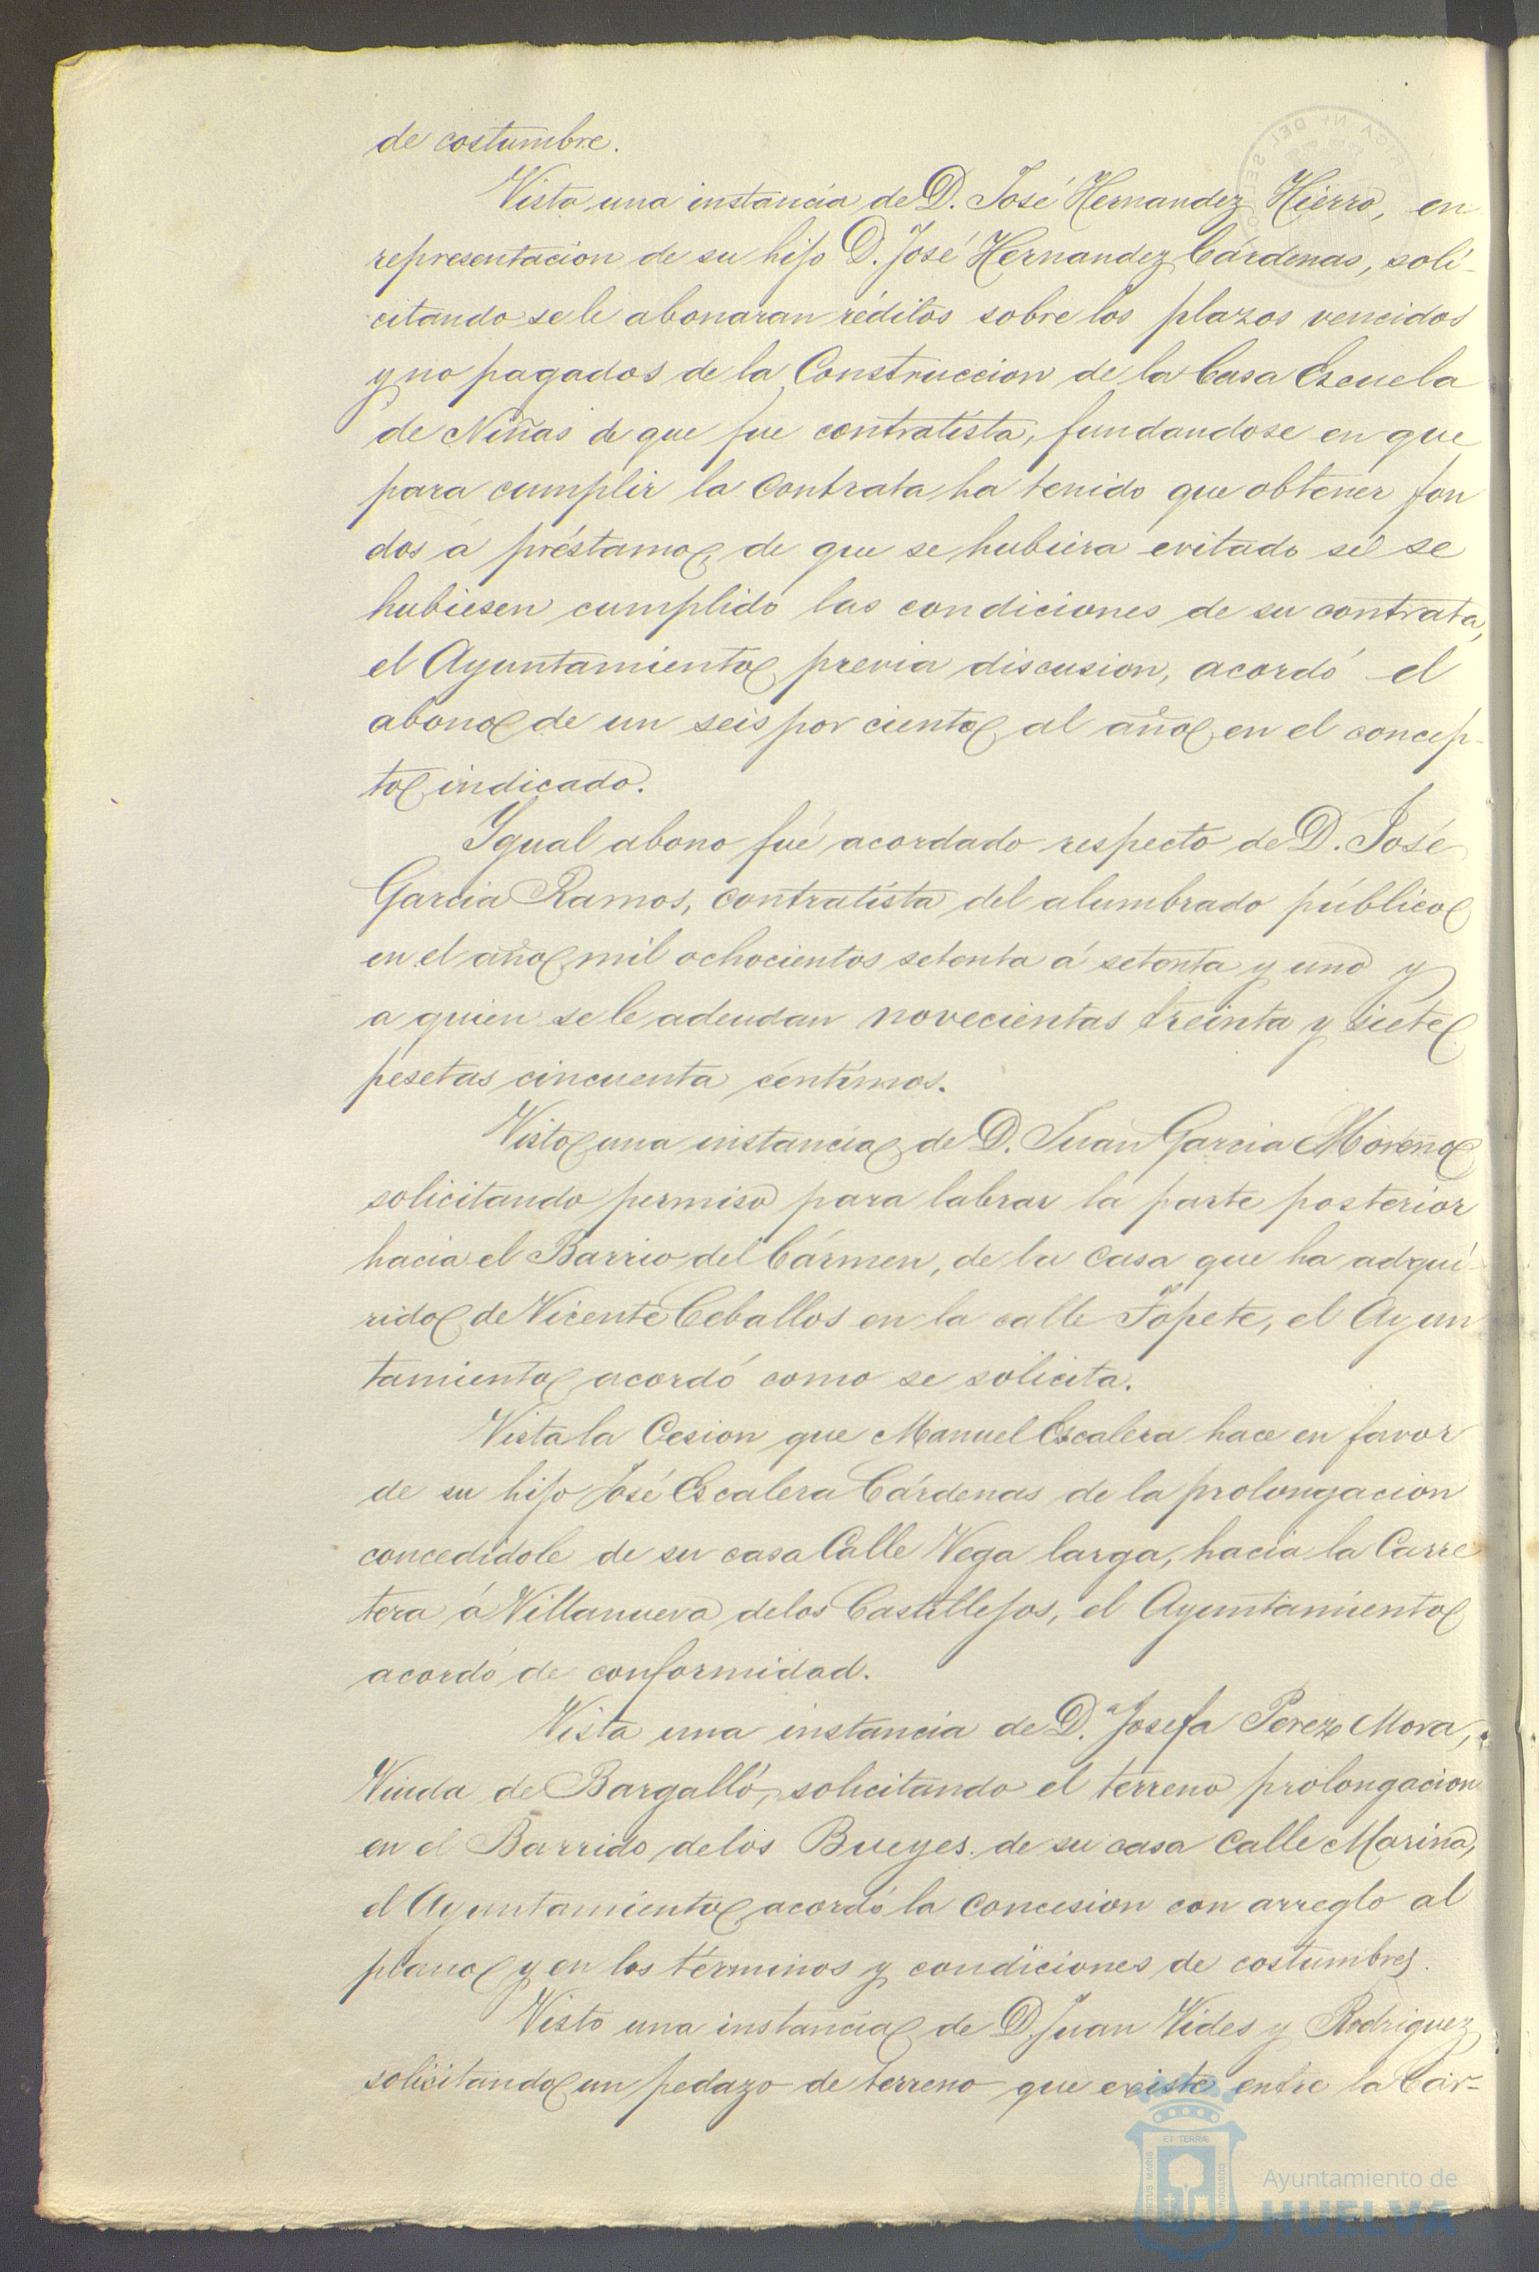 de costumbre.
Vista una instancia de D. José Hernandez Hierro, en
representacion de su hijo D. José Hernandez Cárdenas, soli-
citando se le abonaran réditos sobre los plazos vencidos
y no pagados de la Construccion de la Casa Escuela
de Niñas de que fue contratista, fundandose en que
para cumplir la contrata ha tenido que obtener fon
dos á préstamo, de que se hubiera evitado si se
hubiesen cumplido las condiciones de su contrata,
el Ayuntamiento previa discusion, acordó el
abono de un seis por ciento al año en el concep-
to indicado.
Ygual abono fué acordado respecto de D. José
Garcia Ramos, contratista del alumbrado público
en el año mil ochocientos setenta á setenta y uno y
a quien se le adeudan novecientas treinta y siete
pesetas cincuenta céntimos.
Visto una instancia de D. Juan Garcia Moreno
solicitando permiso para labrar la parte posterior
hacia el Barrio del Cármen, de la casa que ha adqui-
rido de Vicente Ceballos en la calle Topete, el Ayun
tamiento acordó como se solicita.
Vista la Cesion que Manuel Escalera hace en favor
de su hijo José Escalera Cárdenas de la prolongacion
concedidole de su casa Calle Vega larga, hacia la Carre
tera á Villanueva de los Castillejos, el Ayuntamiento
acordó de conformidad.
Vista una instancia de D.ª Josefa Perez Mora,
Viuda de Bargalló, solicitando el terreno prolongacion
en el Barrido de los Bueyes. de su casa Calle Marina,
el Ayuntamiento acordó la concesion con arreglo al
plano y en los términos y condiciones de costumbre.
Visto una instancia de D. Juan Vides y Rodriguez
solicitando un pedazo de terreno que existe entre la Cár-
ET TERRÆ
Ayuntamiento de
HUELVA